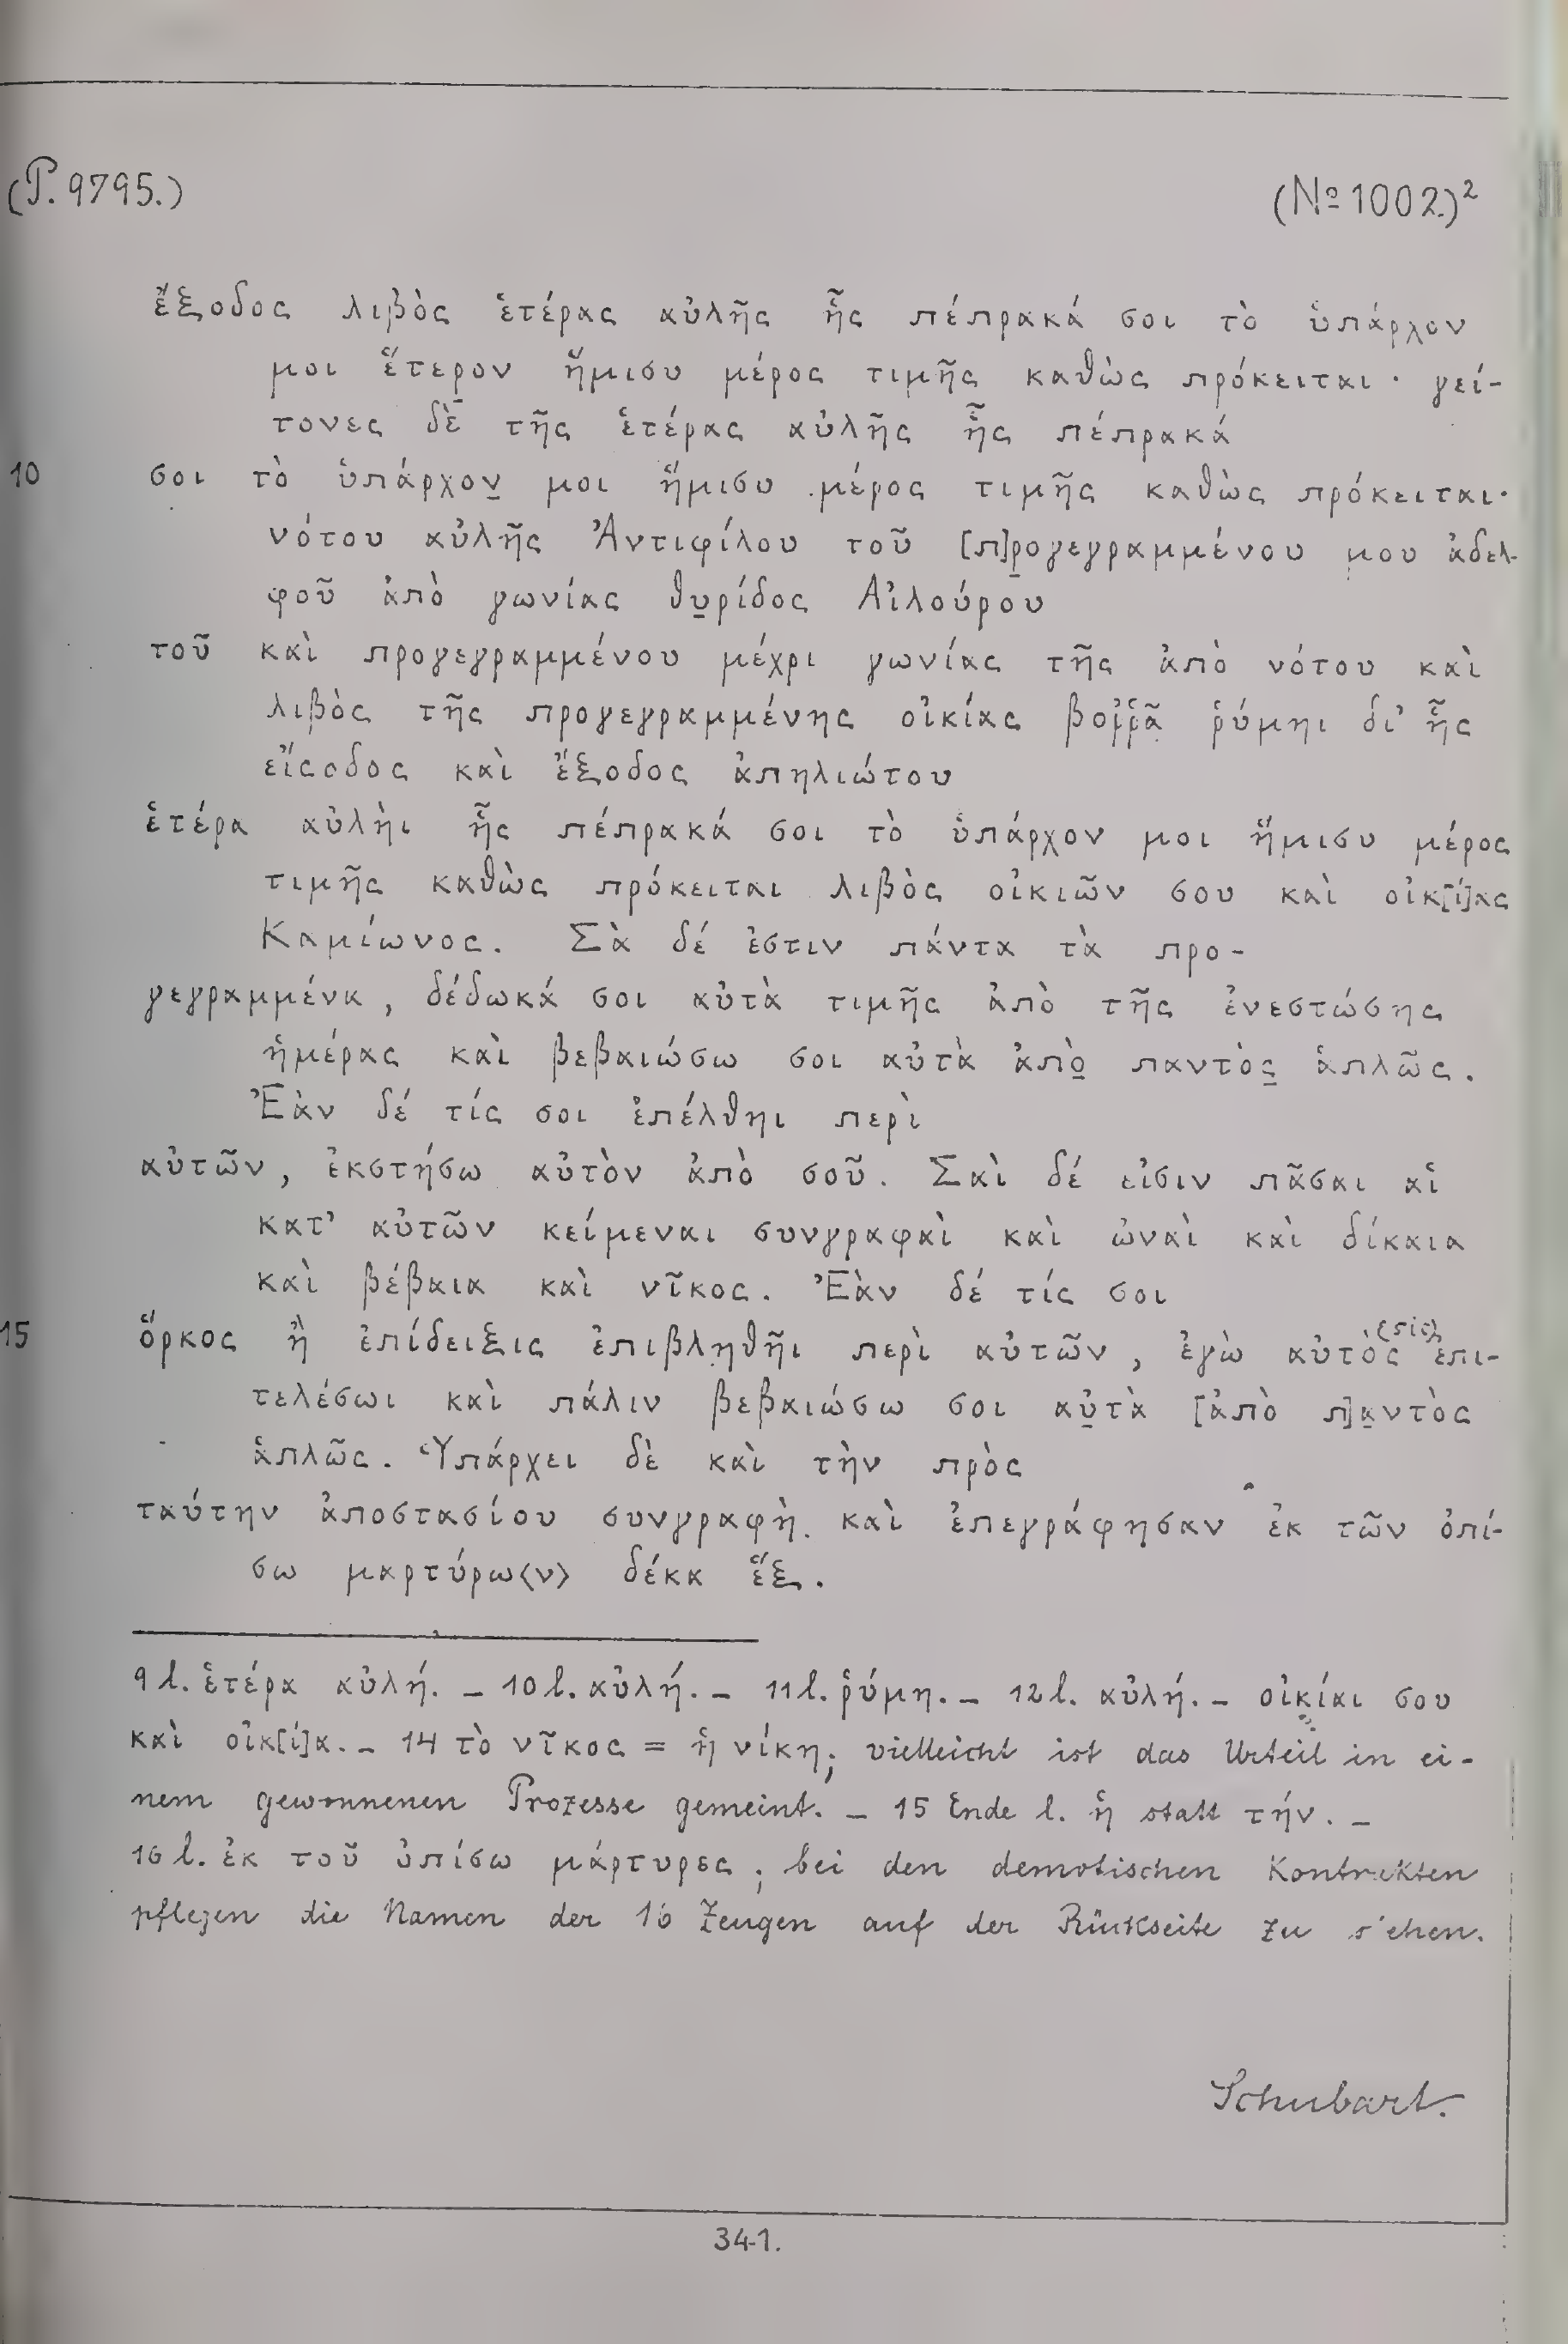 (P. 9795.) (№ 1002.)²
ἔξοδος λιβὸς ἑτέρας αὐλῆς ἧς πέπρακά σοι τὸ ὑπάρχον
μοι ἕτερον ἥμισυ μέρος τιμῆς καθὼς πρόκειται· γεί-
τονες δὲ τῆς ἑτέρας αὐλῆς ἧς πέπρακά
10 σοι τὸ ὑπάρχον̲ μοι ἥμισυ μέρος τιμῆς καθὼς πρόκειται·
νότου αὐλῆς Ἀντιφίλου τοῦ [π]ρ̣ογεγραμμένου μου ἀδελ-
φοῦ ἀπὸ γωνίας θυ̣ρίδος Αἰλούρου
τοῦ καὶ προγεγραμμένου μέχρι γωνίας τῆς ἀπὸ νότου καὶ
λιβὸς τῆς προγεγραμμένης οἰκίας βοῤῥᾶ ῥύμηι δι' ἧς
εἴσοδος καὶ ἔξοδος ἀπηλιώτου
ἑτέρα αὐλὴι ἧς πέπρακά σοι τὸ ὑπάρχον μοι ἥμισυ μέρος
τιμῆς καθὼς πρόκειται λιβὸς οἰκιῶν σου καὶ οἰκ[ί]ας
Καμίωνος. Σὰ δέ ἐστιν πάντα τὰ προ-
γεγραμμένα, δέδωκά σοι αὐτὰ τιμῆς ἀπὸ τῆς ἐνεστώσης
ἡμέρας καὶ βεβαιώσω σοι αὐτὰ ἀπὸ̣ παντὸς̣ ἁπλῶς.
Ἐὰν δέ τίς σοι ἐπέλθηι περὶ
αὐτῶν, ἐκστήσω αὐτὸν ἀπὸ σοῦ. Σαὶ δέ εἰσιν πᾶσαι αἱ
κατ' αὐτῶν κείμεναι συνγραφαὶ καὶ ὠναὶ καὶ δίκαια
καὶ βέβαια καὶ νῖκος. Ἐὰν δέ τίς σοι
15 ὅρκος ἢ ἐπίδειξις ἐπιβληθῆι περὶ αὐτῶν, ἐγὼ αὐτὸς (sic) ἐπι-
τελέσωι καὶ πάλιν βεβαιώσω σοι αὐ̣τὰ [ἀπὸ π]α̣ντὸς
ἁπλῶς. Ὑπάρχει δὲ καὶ τὴν πρὸς
ταύτην ἀποστασίου συνγραφὴ. καὶ ἐπεγράφησαν ἐκ τῶν ὀπί-
σω μαρτύρω⟨ν⟩ δέκα ἕξ.
9 l. ἑτέρα αὐλή. – 10 l. αὐλή. – 11 l. ῥύμη. – 12 l. αὐλή. – οἰκίαι σου
καὶ οἰκ[ί]α. – 14 τὸ νῖκος = ἡ νίκη; vielleicht ist das Urteil in ei-
nem gewonnenen Prozesse gemeint. – 15 Ende l. ἡ statt τήν. –
16 l. ἐκ τοῦ ὀπίσω μάρτυρες; bei den demotischen Kontrakten
pflegen die Namen der 16 Zeugen auf der Rückseite zu stehen.
Schubart.
341.